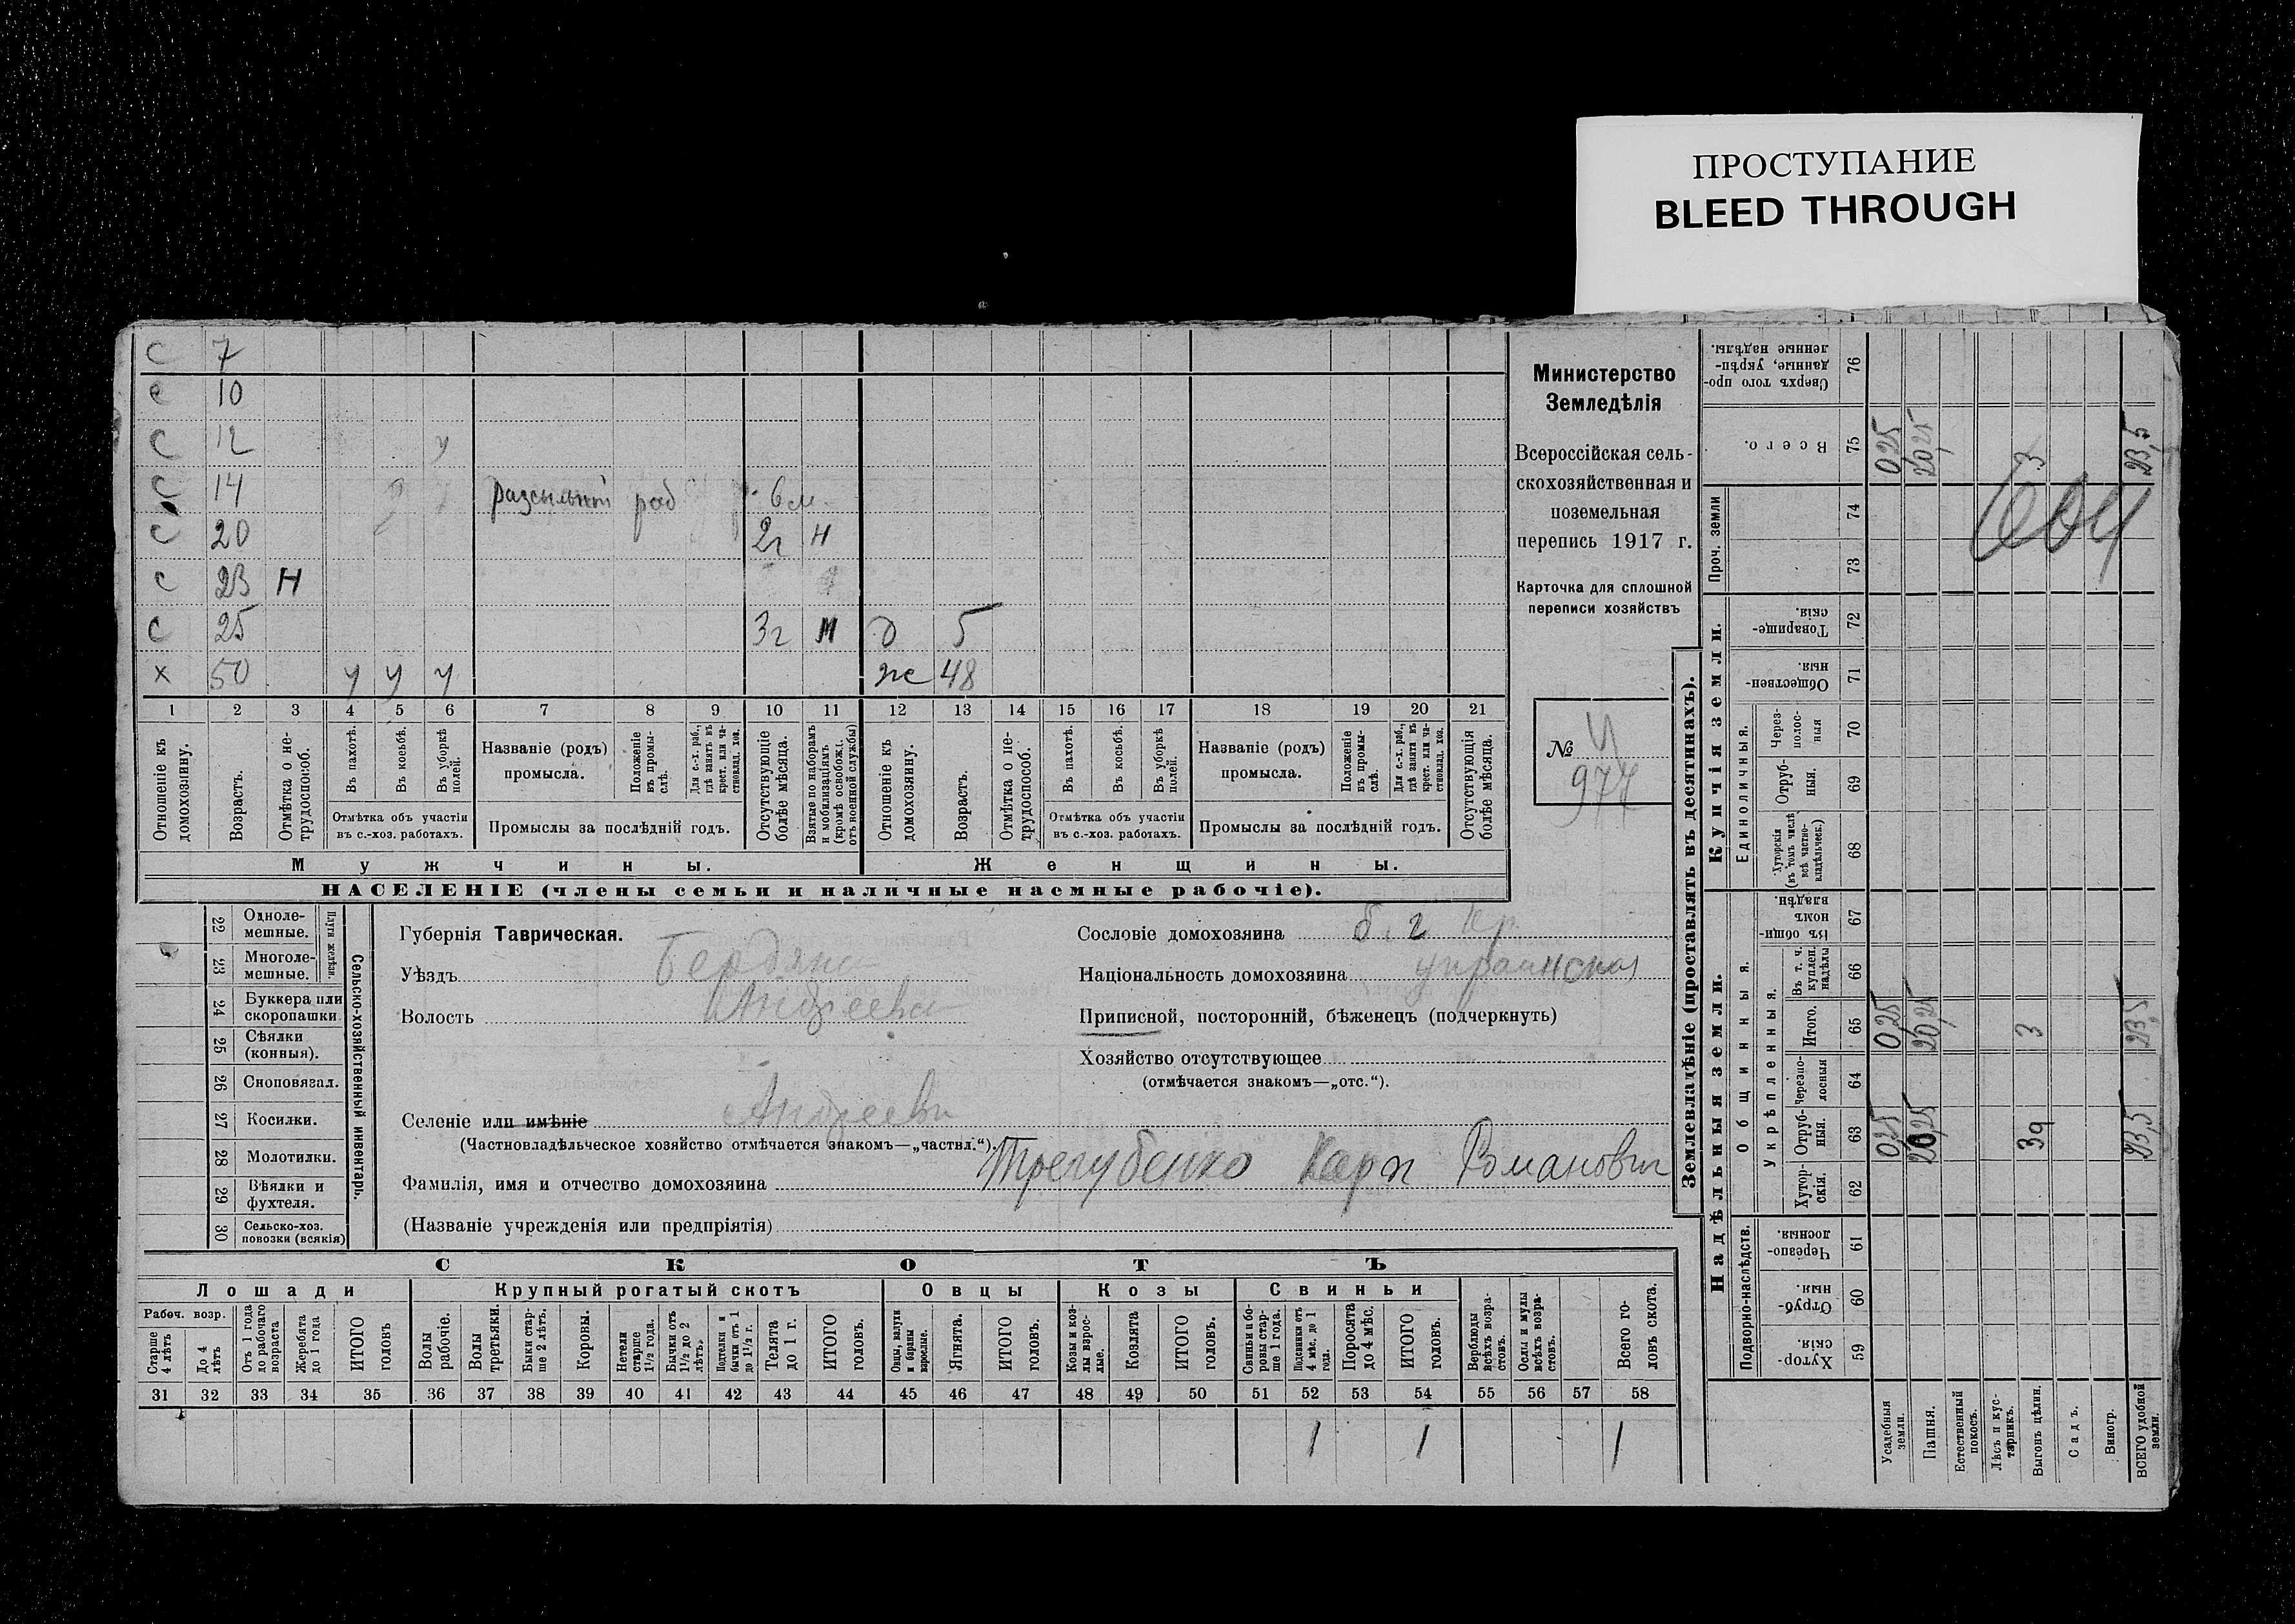 ПРОСТУПАНИЕ
BLEED THROUGH
с 7
с 10
с 12 у
с 14 разсыльный раб 6 м
с 20 2г н
с 23 н
с 25 3г м д 5
х 50 у у у же 48
1 2 3 4 5 6 7 8 9 10 11 12 13 14 15 16 17 18 19 20 21
Отношеніе къ домохозяину.
Возрастъ.
Отмѣтка о не-трудоспособ.
Въ пахотѣ.
Въ косьбѣ.
Въ уборкѣ полей.
Отмѣтка объ участіи въ с.-хоз. работахъ.
Названіе (родъ) промысла.
Положеніе въ промы-слѣ.
Для с.-х. раб., гдѣ занятъ въ крест. или ча-стновлад. хоз.
Промыслы за послѣдній годъ.
Отсутствующіе болѣе мѣсяца.
Взятые по наборамъ и мобилизаціямъ (кромѣ освобожд. отъ военной службы)
Отношеніе къ домохозяину.
Возрастъ.
Отмѣтка о не-трудоспособ.
Въ пахотѣ.
Въ косьбѣ.
Въ уборкѣ полей.
Отмѣтка объ участіи въ с.-хоз. работахъ.
Названіе (родъ) промысла.
Положеніе въ промы-слѣ.
Для с.-х. раб., гдѣ занята въ крест. или ча-стновлад. хоз.
Промыслы за послѣдній годъ.
Отсутствующія болѣе мѣсяца.
Мужчины. Женщины.
НАСЕЛЕНІЕ (члены семьи и наличные наемные рабочіе).
Министерство
Земледѣлія
Всероссійская сель-
скохозяйственная и
поземельная
перепись 1917 г.
Карточка для сплошной
переписи хозяйствъ
№ 4
977
22 Одноле-мешные.
23 Многоле-мешные.
Плуги желѣзн.
24 Буккера или скоропашки
25 Сѣялки (конныя).
26 Сноповязал.
27 Косилки.
28 Молотилки.
29 Вѣялки и фухтеля.
30 Сельско-хоз. повозки (всякія)
Сельско-хозяйственный инвентарь.
Губернія Таврическая.
Уѣздъ Бердянс
Волость Андреевс
Селеніе или имѣніе Андреевк
(Частновладѣльческое хозяйство отмѣчается знакомъ—„частвл.“).
Фамилія, имя и отчество домохозяина Трегубенко Карп Романович
(Названіе учрежденія или предпріятія)
Сословіе домохозяина б. г кр.
Національность домохозяина украинская
Приписной, посторонній, бѣженецъ (подчеркнуть)
Хозяйство отсутствующее
(отмѣчается знакомъ—„отс.“).
СКОТЪ
Лошади Крупный рогатый скотъ Овцы Козы Свиньи
Рабоч. возр.
Старше 4 лѣтъ
До 4 лѣтъ
Отъ 1 года до рабочаго возраста
Жеребята до 1 года
ИТОГО головъ
Волы рабочіе.
Волы третьяки.
Быки стар-ше 2 лѣтъ.
Коровы.
Нетели старше 1½ года.
Бычки отъ 1½ до 2 лѣтъ.
Подтелки и бычки отъ 1 до 1½ г.
Телята до 1 г.
ИТОГО головъ.
Овцы, валухи и бараны взрослые.
Ягнята.
ИТОГО головъ.
Козы и коз-лы взрос-лые.
Козлята
ИТОГО головъ.
Свиньи и бо-ровы стар-ше 1 года.
Подсвинки отъ 4 мѣс. до 1 года.
Поросята до 4 мѣс.
ИТОГО головъ.
Верблюды всѣхъ возра-стовъ.
Ослы и мулы всѣхъ возра-стовъ.
Всего го-ловъ скота.
31 32 33 34 35 36 37 38 39 40 41 42 43 44 45 46 47 48 49 50 51 52 53 54 55 56 57 58
1 1 1
Землевладѣніе (проставлять въ десятинахъ).
Купчія земли.
Надѣльныя земли.
Сверхъ того про-данные, укрѣп-ленные надѣлы. 76
Всего. 75 0,25 20,25 3 23,5
604
Проч. земли 74 73
Товарище-скія. 72
Обществен-ныя. 71
Единоличныя.
Через-полос-ныя 70
Отруб-ныя. 69
Хуторскія (въ томъ числѣ всѣ частно-владѣльческ.) 68
Общинныя.
Въ общин-номъ владѣн. 67
Укрѣпленныя.
Въ т. ч. куплен. надѣлы 66
Итого. 65 0,25 20,25 3 23,5
Черезпо-лосныя 64
Отруб-ныя. 63 0,25 20,25 3 23,5
Хутор-скія. 62
Подворно-наслѣдств.
Черезпо-лосныя 61
Отруб-ныя. 60
Хутор-скія. 59
Усадебныя земли.
Пашня.
Естественный покосъ.
Лѣсъ и кус-тарникъ.
Выгонъ цѣлин.
Садъ.
Виногр.
ВСЕГО удобной земли.